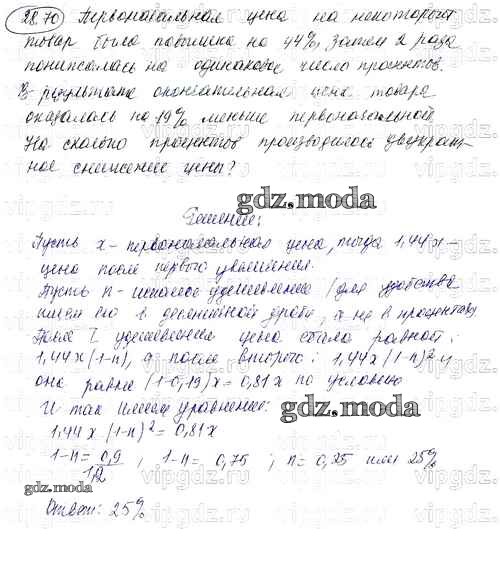 28.70 Первоначальная цена на некоторый
товар была повышена на 44%, затем 2 раза
понижалась на одинаковое число процентов.
В результате окончательная цена товара
оказалась на 19% меньше первоначальной
На сколько процентов производилось двукрат-
ное снижение цены?
gdz.moda
Решение:
Пусть x - первоначальная цена, тогда 1,44x -
цена после первого увеличения.
Пусть n - искомое удешевление (для удобства
ищем его в десятичной дроби, а не в процентах)
После I удешевления цена стала равной:
1,44x(1-n), а после второго: 1,44x(1-n)² и
она равна (1-0,19)x = 0,81x по условию
Итак имеем уравнение:
gdz.moda
1,44x(1-n)² = 0,81x
1-n = 0,9/1,2 ; 1-n = 0,75 ; n = 0,25 или 25%
gdz.moda
Ответ: 25%